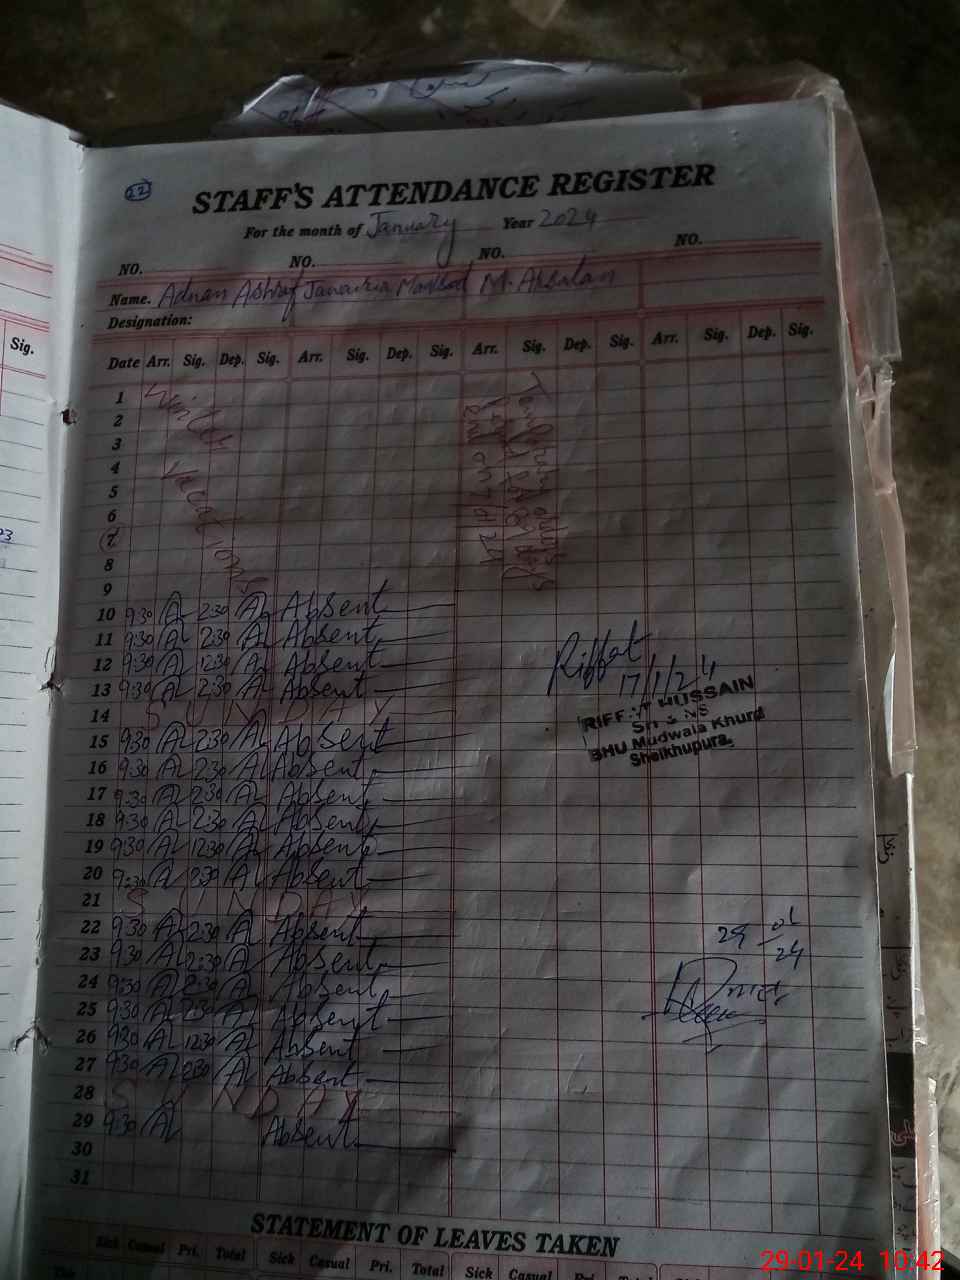 22
STAFF'S ATTENDANCE REGISTER
For the month of January Year 2024
NO. NO. NO. NO.
Name. Adnan Ashraf Maqsood M. Arsalan
Designation:
Sig.
Date Arr. Sig. Dep. Sig. Arr. Sig. Dep. Sig. Arr. Sig. Dep. Sig. Arr. Sig. Dep. Sig.
Winter Vacations
end on
1
2
3
4
5
6
7
8
9
10 9:30 2:30 Absent
11 9:30 2:30 Absent
12 9:30 12:30 Absent
13 9:30 2:30 Absent
14 SUNDAY
15 9:30 2:30 Absent
16 9:30 2:30 Absent
17 9:30 2:30 Absent
18 9:30 2:30 Absent
19 9:30 12:30 Absent
20 9:30 2:30 Absent
21 SUNDAY
22 9:30 2:30 Absent
23 9:30 2:30 Absent
24 9:30 2:30 Absent
25 9:30 2:30 Absent
26 9:30 12:30 Absent
27 9:30 2:30 Absent
28 SUNDAY
29 9:30 Absent
30
31
Riffat
17/1/24
HUSSAIN
BHU Mudwala Khurd
Sheikhupura.
29 01
24
STATEMENT OF LEAVES TAKEN
Sick Casual Pri. Total Sick Casual Pri. Total Sick Casual Pri. Total
29-01-24 10:42